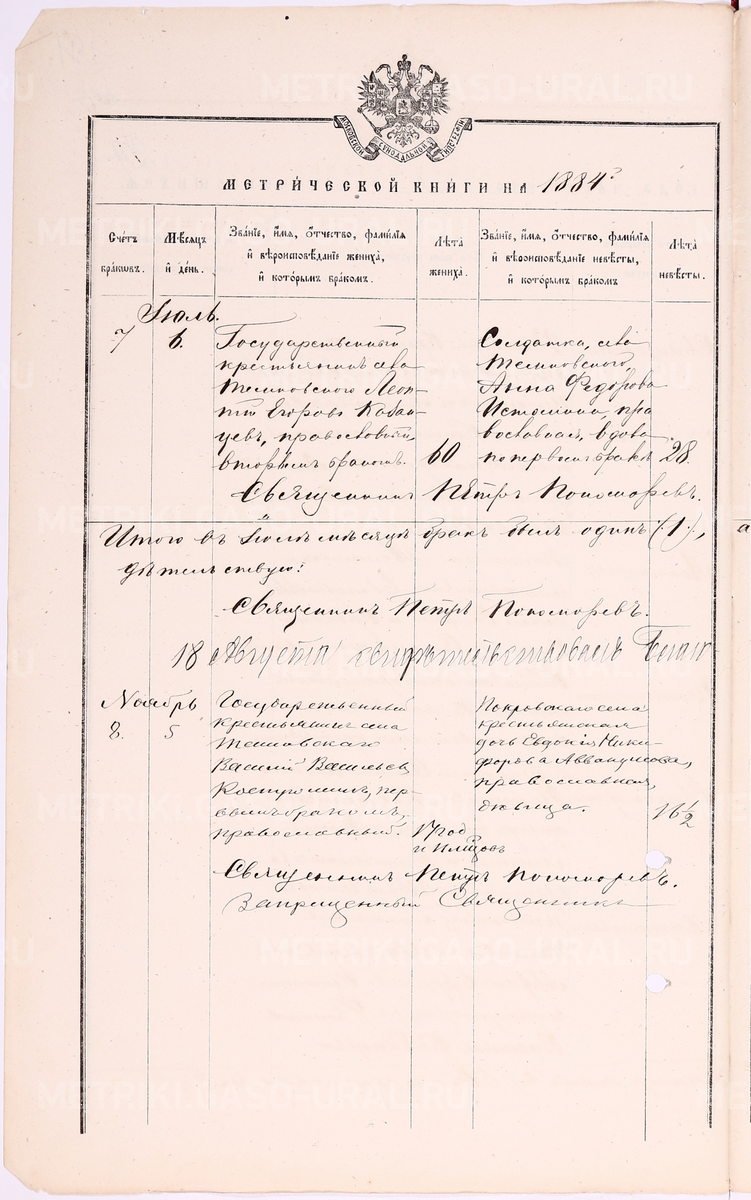 МОСКОВСКОЙ СѶНОДАЛЬНОЙ ТИПОГРАФІИ
МЕТРИ́ЧЕСКОЙ КНИ́ГИ НА 1884 г.
Сче́тъ бра́ковъ.
Мѣ́сяцъ и҆ де́нь.
Зва́нїе, и҆́мя, ѻ҆́тчество, фами́лїя и҆ вѣроисповѣ́данїе жениха̀, и҆ кото́рымъ бра́комъ.
Лѣ́та жениха̀.
Зва́нїе, и҆́мя, ѻ҆́тчество, фами́лїя и҆ вѣроисповѣ́данїе невѣ́сты, и҆ кото́рымъ бра́комъ
Лѣ́та невѣ́сты.
Іюль.
7
6.
Государственный
крестьянинъ села
Темновского Леон-
тій Егоровъ Кабан-
цевъ, православный,
вторымъ бракомъ.
60
Солдатка, села
Темновского,
Анна Федорова
Истомина, пра
вославная, вдова
по первомъ бракѣ
28.
Священникъ Петръ Пономаревъ.
Итого въ Іюлѣ мѣсяцѣ бракъ былъ одинъ (1),
Священникъ Петръ Пономаревъ.
18 Августа свидѣтельствовалъ
Ноябрь
8.
5
Государственный
крестьянинъ села
Темновскаго
Василій Васильевъ
Костроминъ, пер
вымъ бракомъ,
православный.
17 год
Покровскаго села
крестьянская
дочь Евдокія Ники-
форова Аввакумова,
православная,
дѣвица.
16 1/2
Священникъ Петръ Пономаревъ.
Запрещенный Священникъ
METRIKI.GASO-URAL.RU